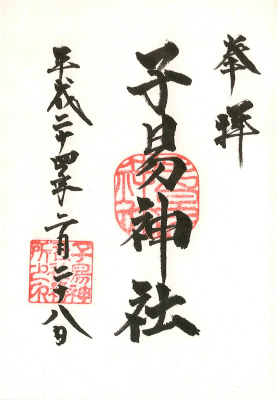 奉拝
子易神社
平成二十四年二月二十八日